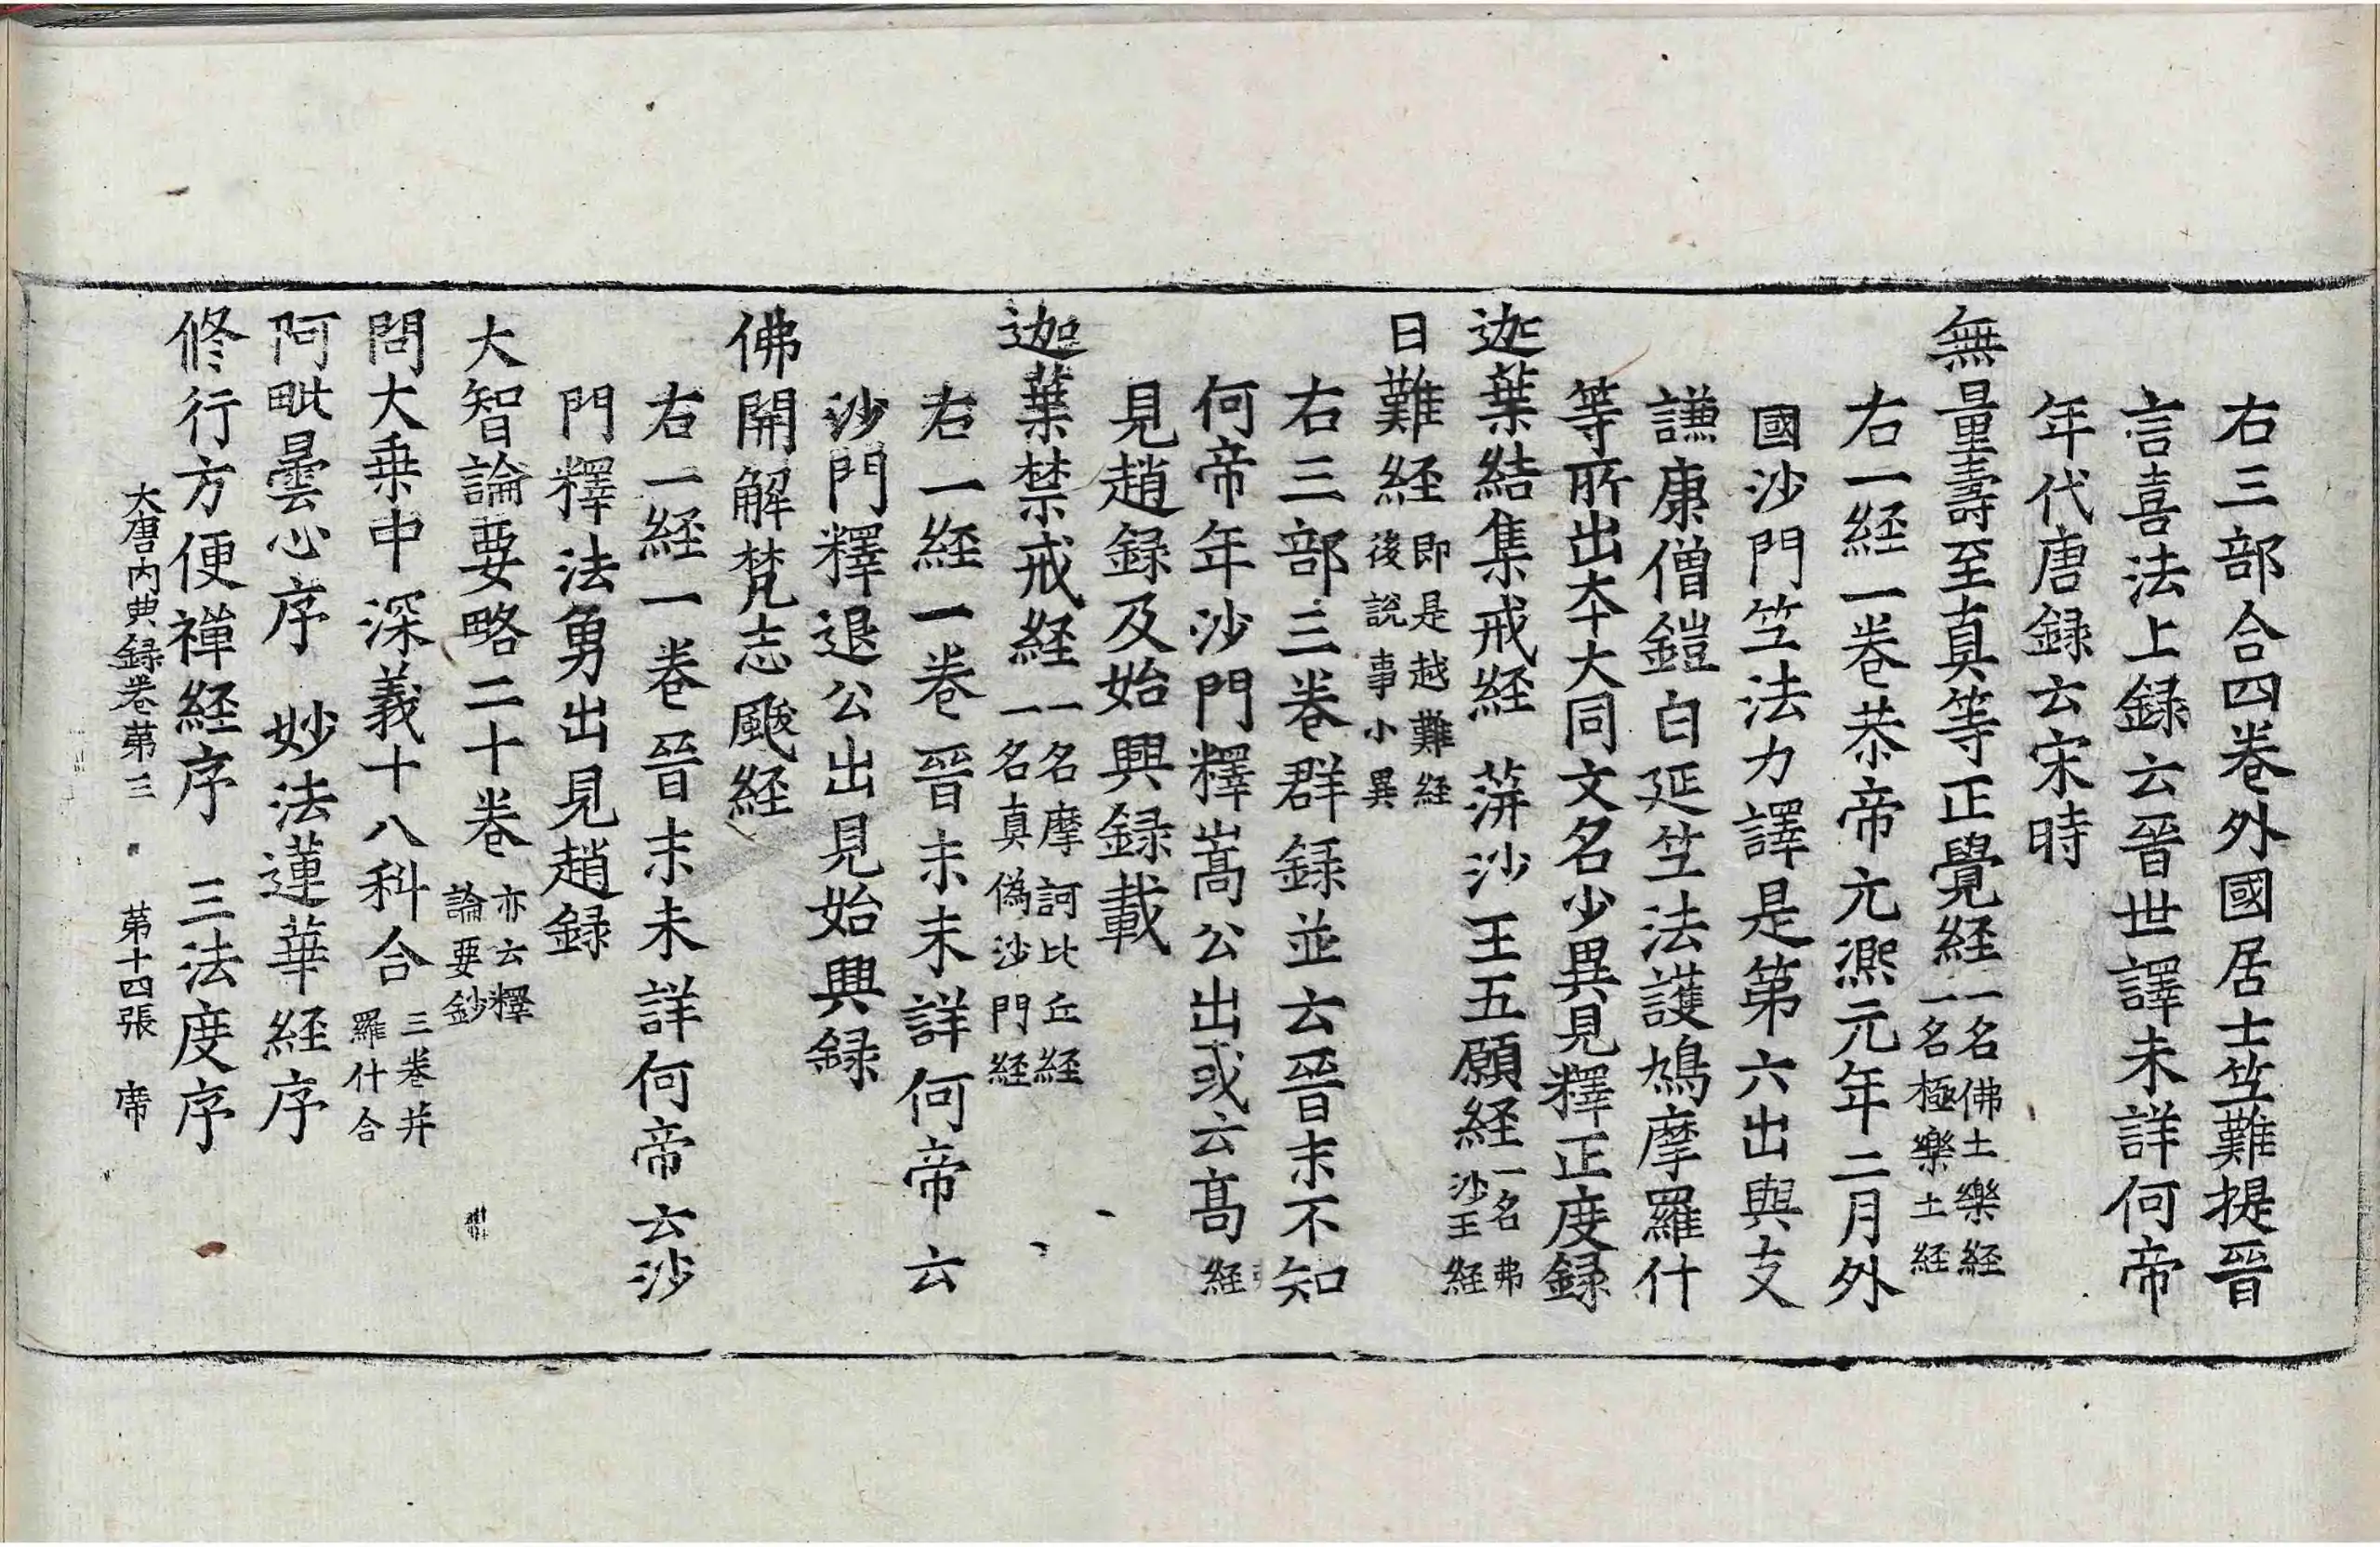 右三部合四卷外國居士竺難提晉
言喜法上録云晉世譯未詳何帝
年代唐録云宋時
無量壽至真等正覺経一名佛土樂経一名極樂土経
右一経一卷恭帝元熈元年二月外
國沙門竺法力譯是第六出與支
謙康僧鎧白延竺法護鳩摩羅什
等所出夲大同文名少異見釋正度録
迦葉結集戒経 蓱沙王五願経一名弗沙王経
日難経即是越難経後說事小異
右三部三卷群録並云晉末不知
何帝年沙門釋嵩公出或云髙経
見趙録及始興録載
迦葉禁戒経一名摩訶比丘経一名真偽沙門経
右一経一卷晉末未詳何帝云
沙門釋退公出見始興録
佛開解梵志颰経
右一経一卷晉末未詳何帝云沙
門釋法勇出見趙録
大智論要略二十卷亦云釋論要鈔
問大乗中深義十八科合三卷并羅什合
阿毗曇心序 妙法蓮華経序
修行方便禪経序 三法度序
大唐内典録卷苐三 苐十四張 帝